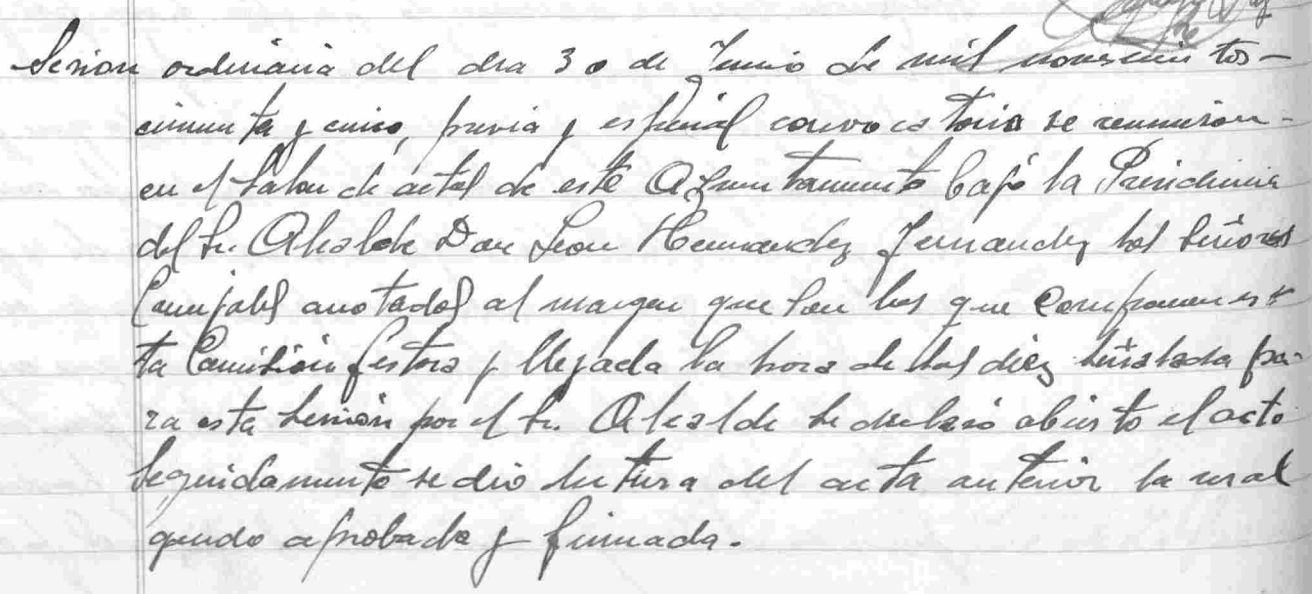 Sesion ordinaria del dia 30 de Junio de mil novecientos-
cincuenta y cinco, previa y especial convocatoria se reunieron-
en el Salon de actos de este Ayuntamiento bajo la Presidencia
del Sr. Alcalde Don Leon Hernandez Fernandez los Señores
Concejales anotados al margen que son los que componen es-
ta Comision Gestora y llegada la hora de las diez señalada pa-
ra esta Sesion por el Sr. Alcalde se declaró abierto el acto
Seguidamente se dio lectura del acta anterior la cual
quedo aprobada y firmada.